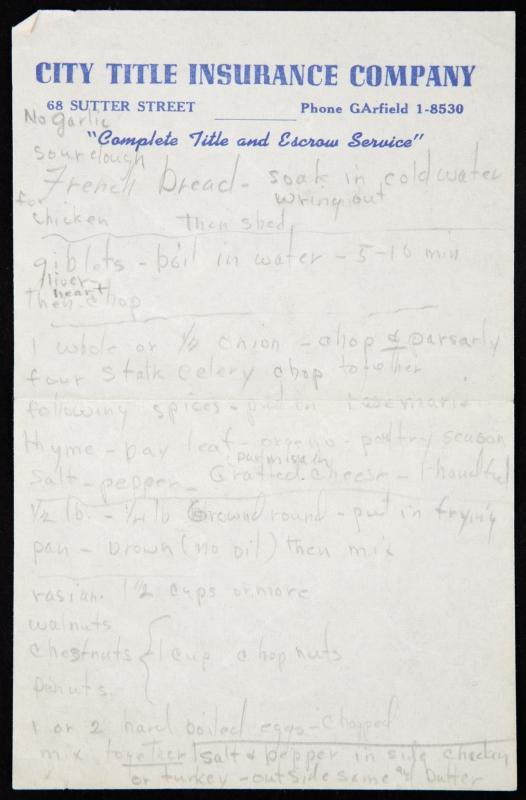 CITY TITLE INSURANCE COMPANY
68 SUTTER STREET Phone GArfield 1-8530
"Complete Title and Escrow Service"
No garlic
sourdough
French bread - soak in cold water
for chicken wring out
then shed
giblets - boil in water - 5-10 min
liver
heart
then chop
1 whole or 1/2 onion - chop & parsarly
four stalk celery chop together
following spices - put in
thyme - bay leaf - oregeno - poultry season
parmisain
salt - pepper - Grated cheese - 1 handful
1/2 lb. - 1/4 lb Ground round - put in frying
pan - brown (no oil) then mix
rasian. 1 1/2 cups or more
walnuts
chestnuts { 1 cup chop nuts
panuts.
1 or 2 hard boiled eggs - chopped
mix together salt & pepper in side chicken
or turkey - outside same & butter